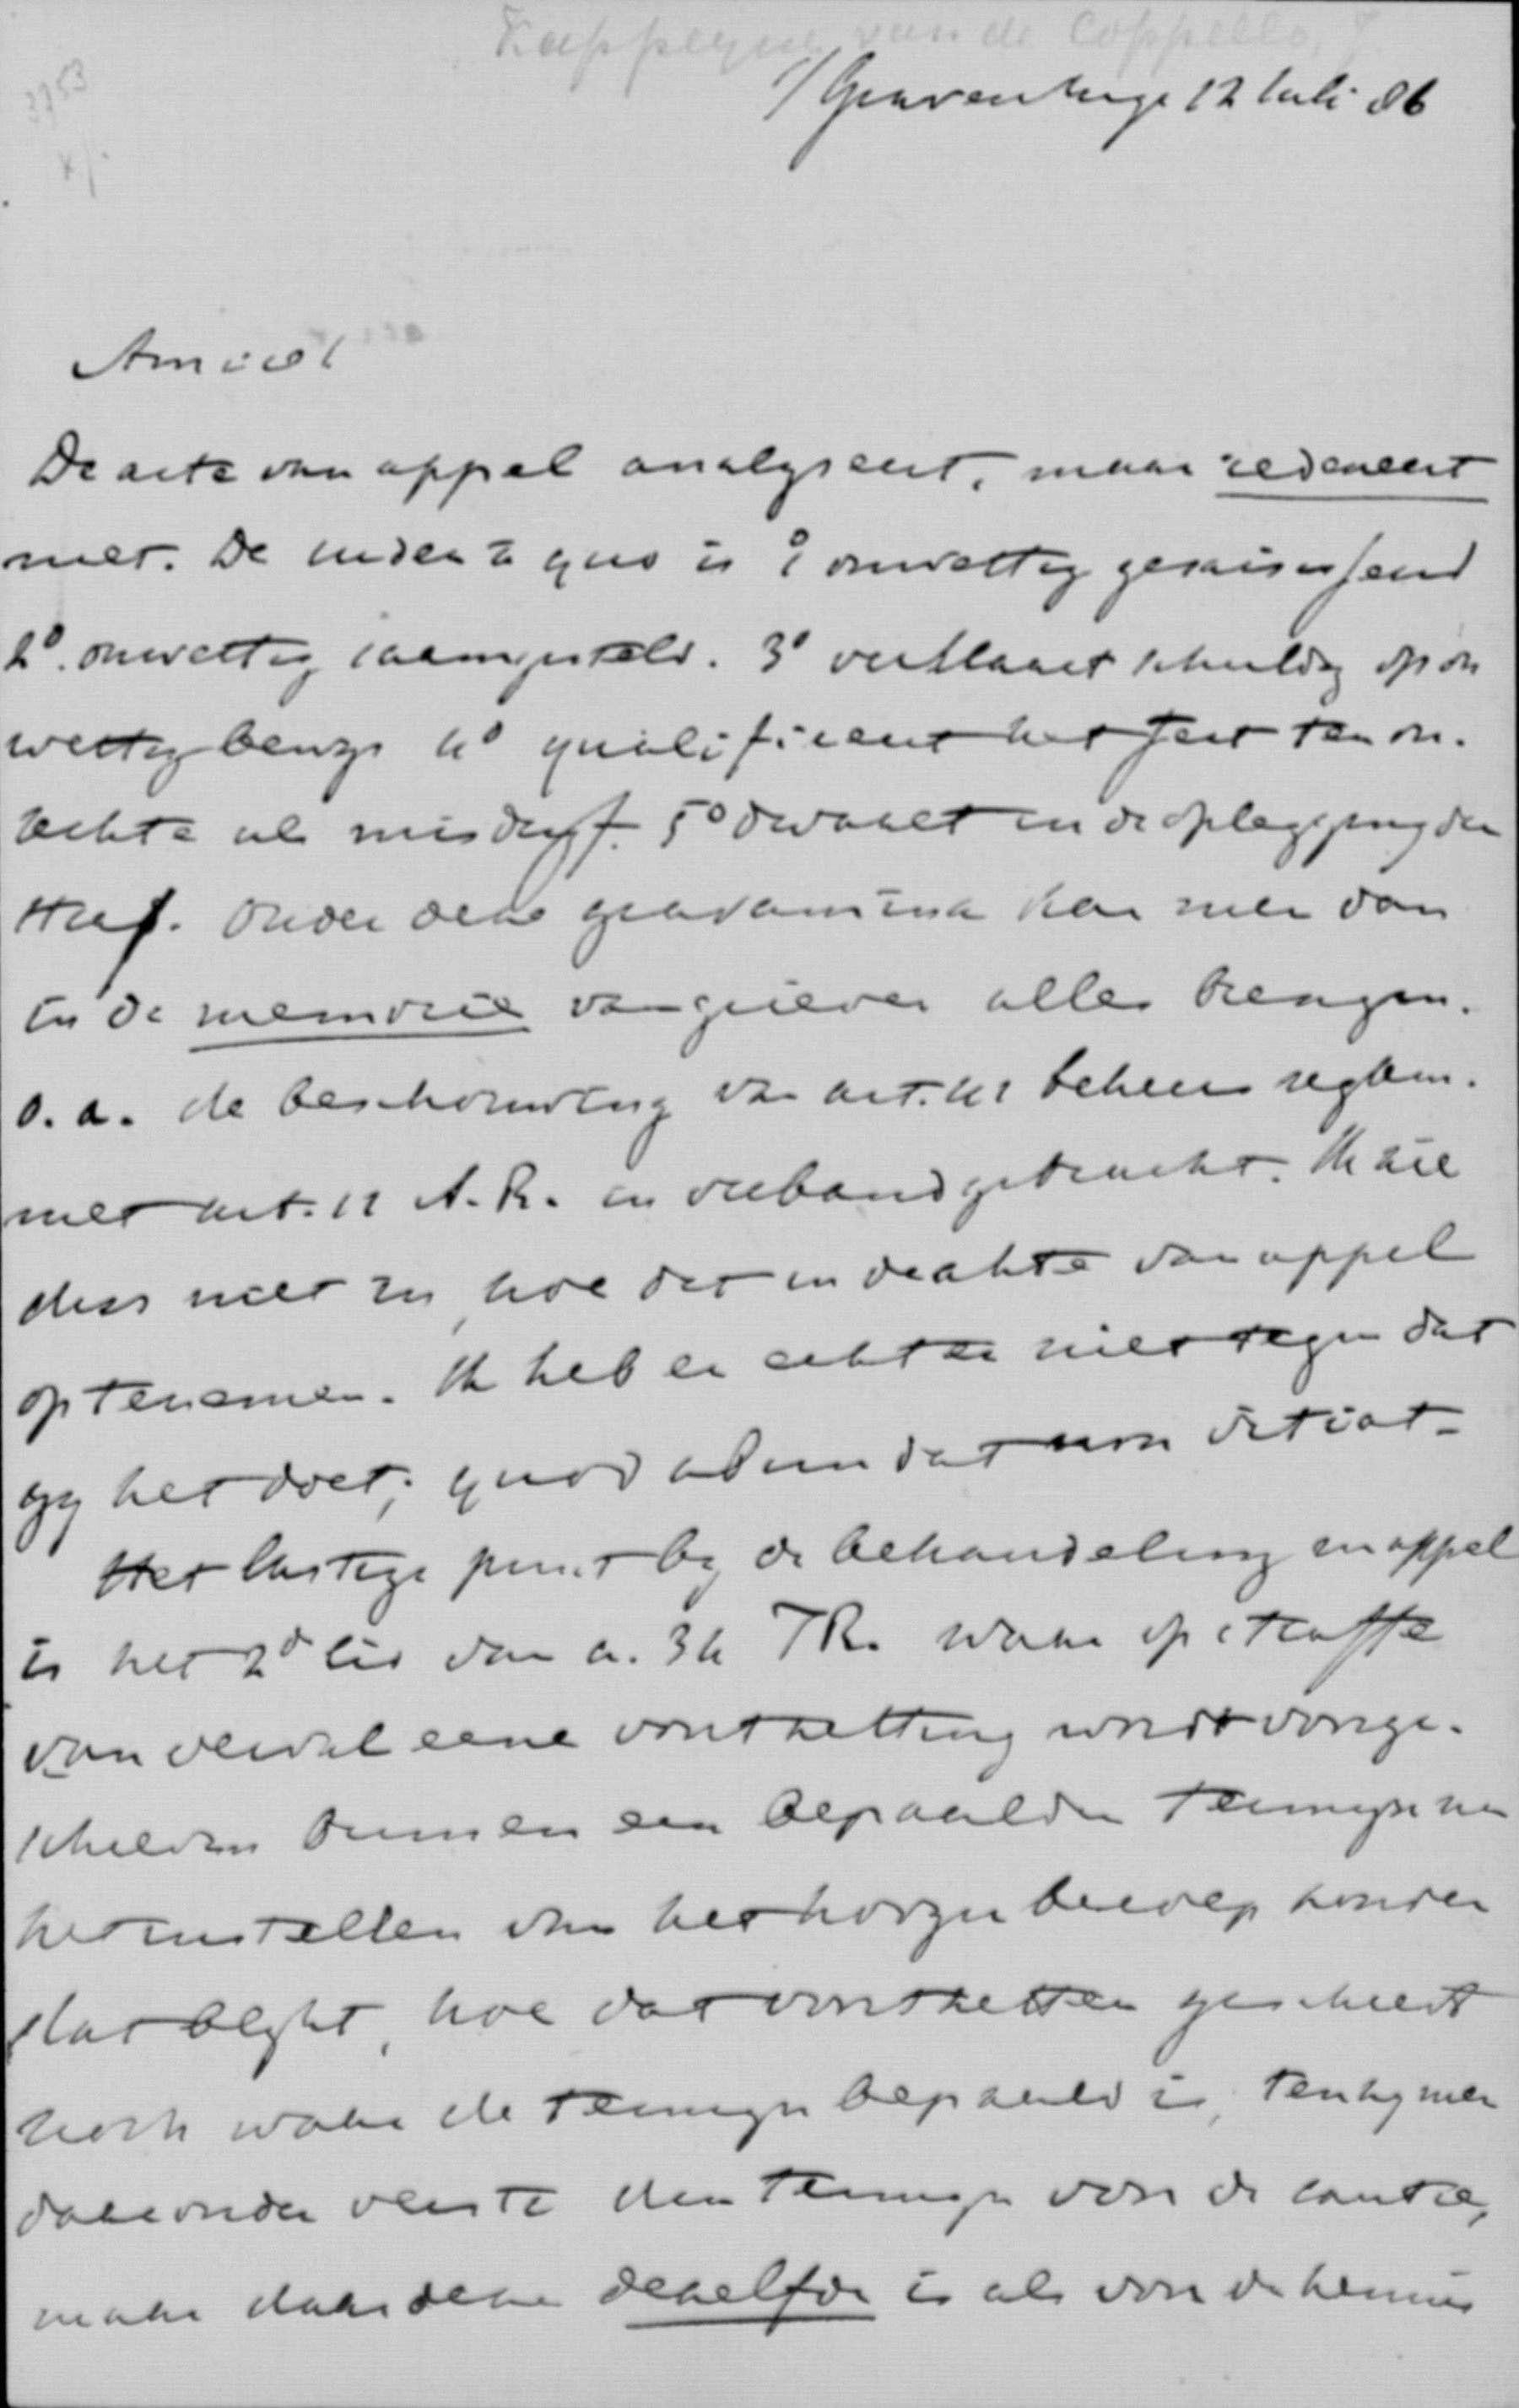 Kappeyne van de Coppello, J.
3753
x/.
's Gravenhage 12 Juli 86
Amice!
De acte van appel analyseert, maar redeneert
niet. De iudex a quo is 1° onwettig gesaisisseerd
2°. onwettig saamgesteld. 3° verklaart schuldig op on
wettig bewijs 4° qualificeert het feit ten on.
rechte als misdrijf. 5° dwaalt in de oplegging der
straf. Onder deze gravamina kan men dan
in de memorie van grieven alles brengen.
o.a. de beschouwing van art. 41 beheersreglem.
met art. 11 A.R. in verband gebracht. Ik zie
dus niet in, hoe dat in de akte van appel
op te nemen. Ik heb er echter niet tegen dat
gij het doet; quod abundat non vitiat.
Het lastige punt bij de behandeling in appel
is het 2e lid van a. 34 T.R. waar op straffe
van verval eene voortzetting wordt voorge-
schreven binnen een bepaalden termijn na
het instellen van het hooger beroep zonder
dat blijkt, hoe dat voortzetten geschiedt
noch waar de termijn bepaald is, tenzij men
daaronder verste den termijn voor de cautie,
maar daar deze dezelfde is als voor de kennis